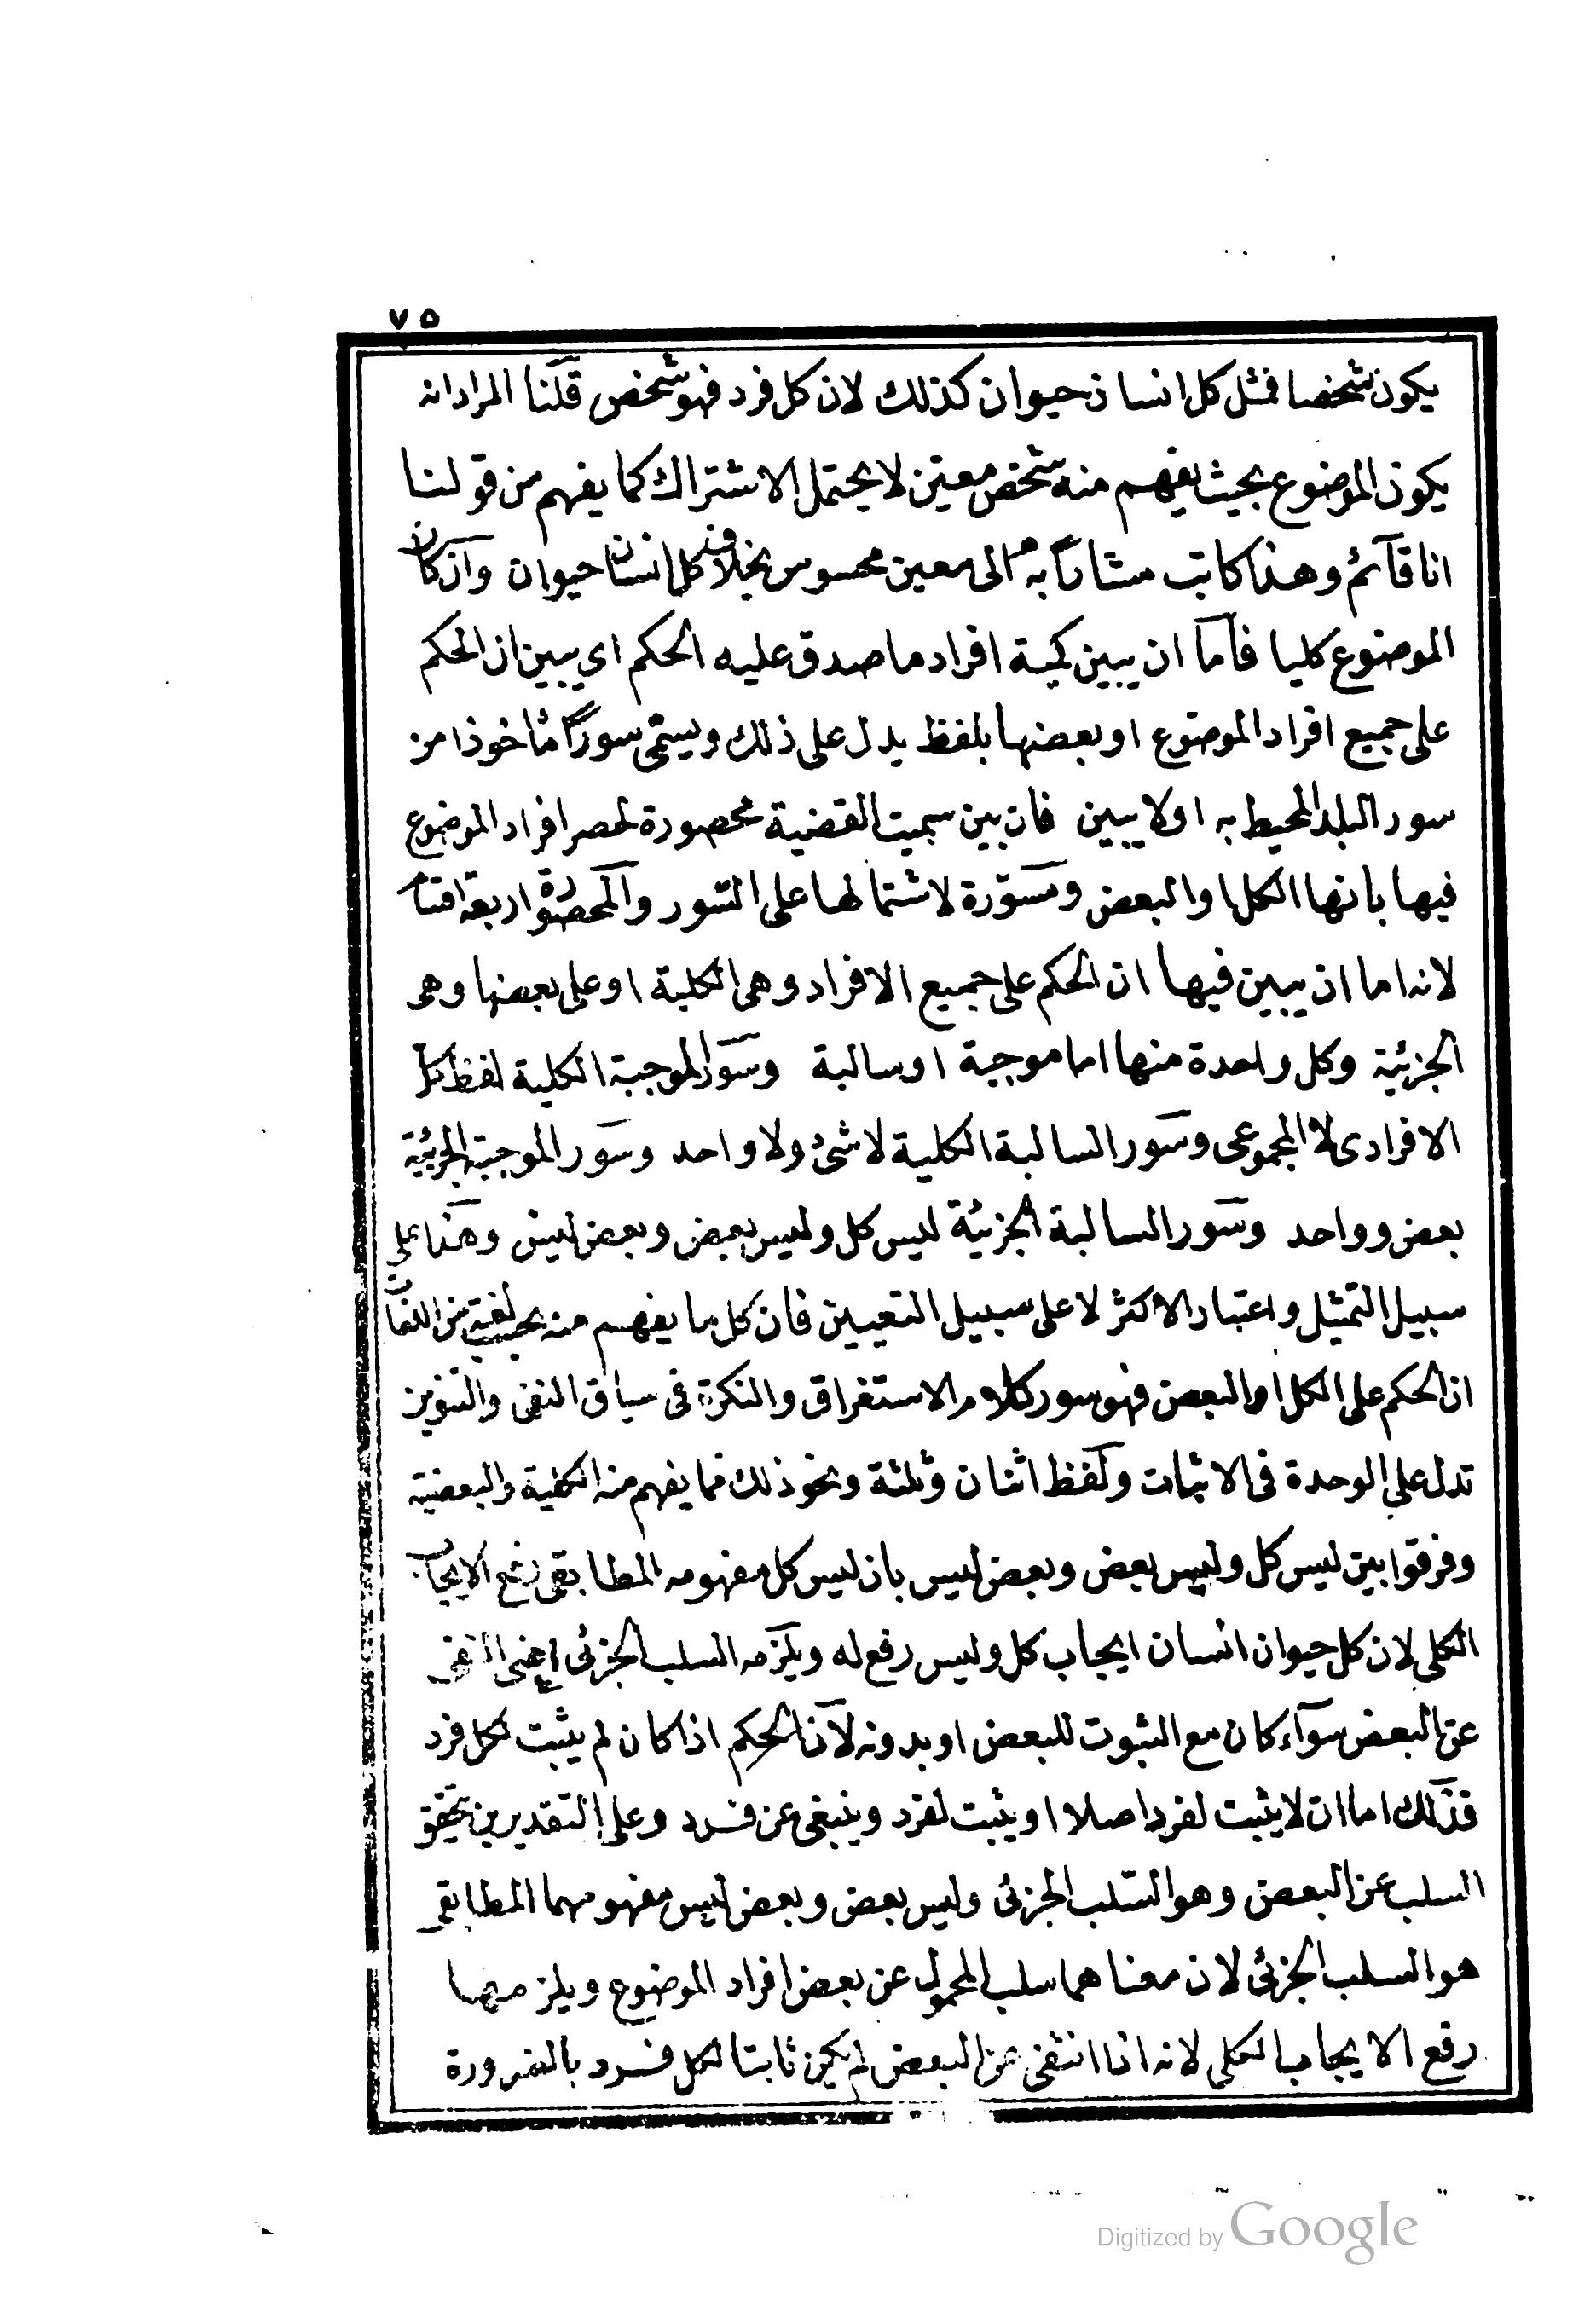 ٧٥
يكون شخصا فمثل كل انسان حيوان كذلك لان كل فرد فهو شخص قلنا المراد انه
يكون الموضوع بحيث يفهم منه شخص معين لا يحتمل الاشتراك كما يفهم من قولنا
انا قآئم وهذا كاتب مشارًا به الى معين محسوس بخلاف كل انسان حيوان وان كان
الموضوع كليا فامآ ان يبين كمية افراد ما صدق عليه الحكم اى يبين ان الحكم
على جميع افراد الموضوع او بعضها بلفظ يدل على ذلك ويسمّى سورًا مأخوذا من
سور البلد المحيط به اولا يبين فان بين سميت القضية محصورة لحصر افراد الموضوع
فيها بانها الكل او البعض ومسوّرة لاشتمالها على السّور والمحصورة اربعة اقسام
لانه اما ان يبين فيها ان الحكم على جميع الافراد وهى الكلية او على بعضها وهى
الجزئية وكل واحدة منها اما موجبة او سالبة وسور الموجبة الكلية لفظ كل
الافرادى لا المجموعى وسور السالبة الكلية لا شئ ولا واحد وسور الموجبة الجزئية
بعض وواحد وسور السالبة الجزئية ليس كل وليس بعض وبعض ليس وهذا على
سبيل التمثيل واعتبار الاكثر لا على سبيل التعيين فان كل ما يفهم منه بحسب لغة من اللغات
ان الحكم على الكل او البعض فهو سور كلام الاستغراق والنكرة فى سياق النفى والتنوين
تدل على الوحدة فى الاثبات ولفظ اثنان وثلثة ونحو ذلك مما يفهم منه الكلية والبعضية
وفرقوا بين ليس كل وليس بعض وبعض ليس بان ليس كل مفهومه المطابقى رفع الايجاب
الكلى لان كل حيوان انسان ايجاب كل وليس رفع له ويلزمه السلب الجزئى اعنى النفى
عن البعض سوآء كان مع الثبوت للبعض او بدونه لان الحكم اذا كان لم يثبت لكل فرد
فذلك اما ان لا يثبت لفرد اصلا او يثبت لفرد وينبغى عن فرد وعلى التقديرين يتحقق
السلب عن البعض وهو السّلب الجزئى وليس بعض وبعض ليس مفهومهما المطابقى
هو السلب الجزئى لان معناهما سلب المحمول عن بعض افراد الموضوع ويلزمهما
رفع الايجاب الكلى لانه اذا انتفى عن البعض لم يكن ثابتا لكل فرد بالضرورة
Digitized by Google